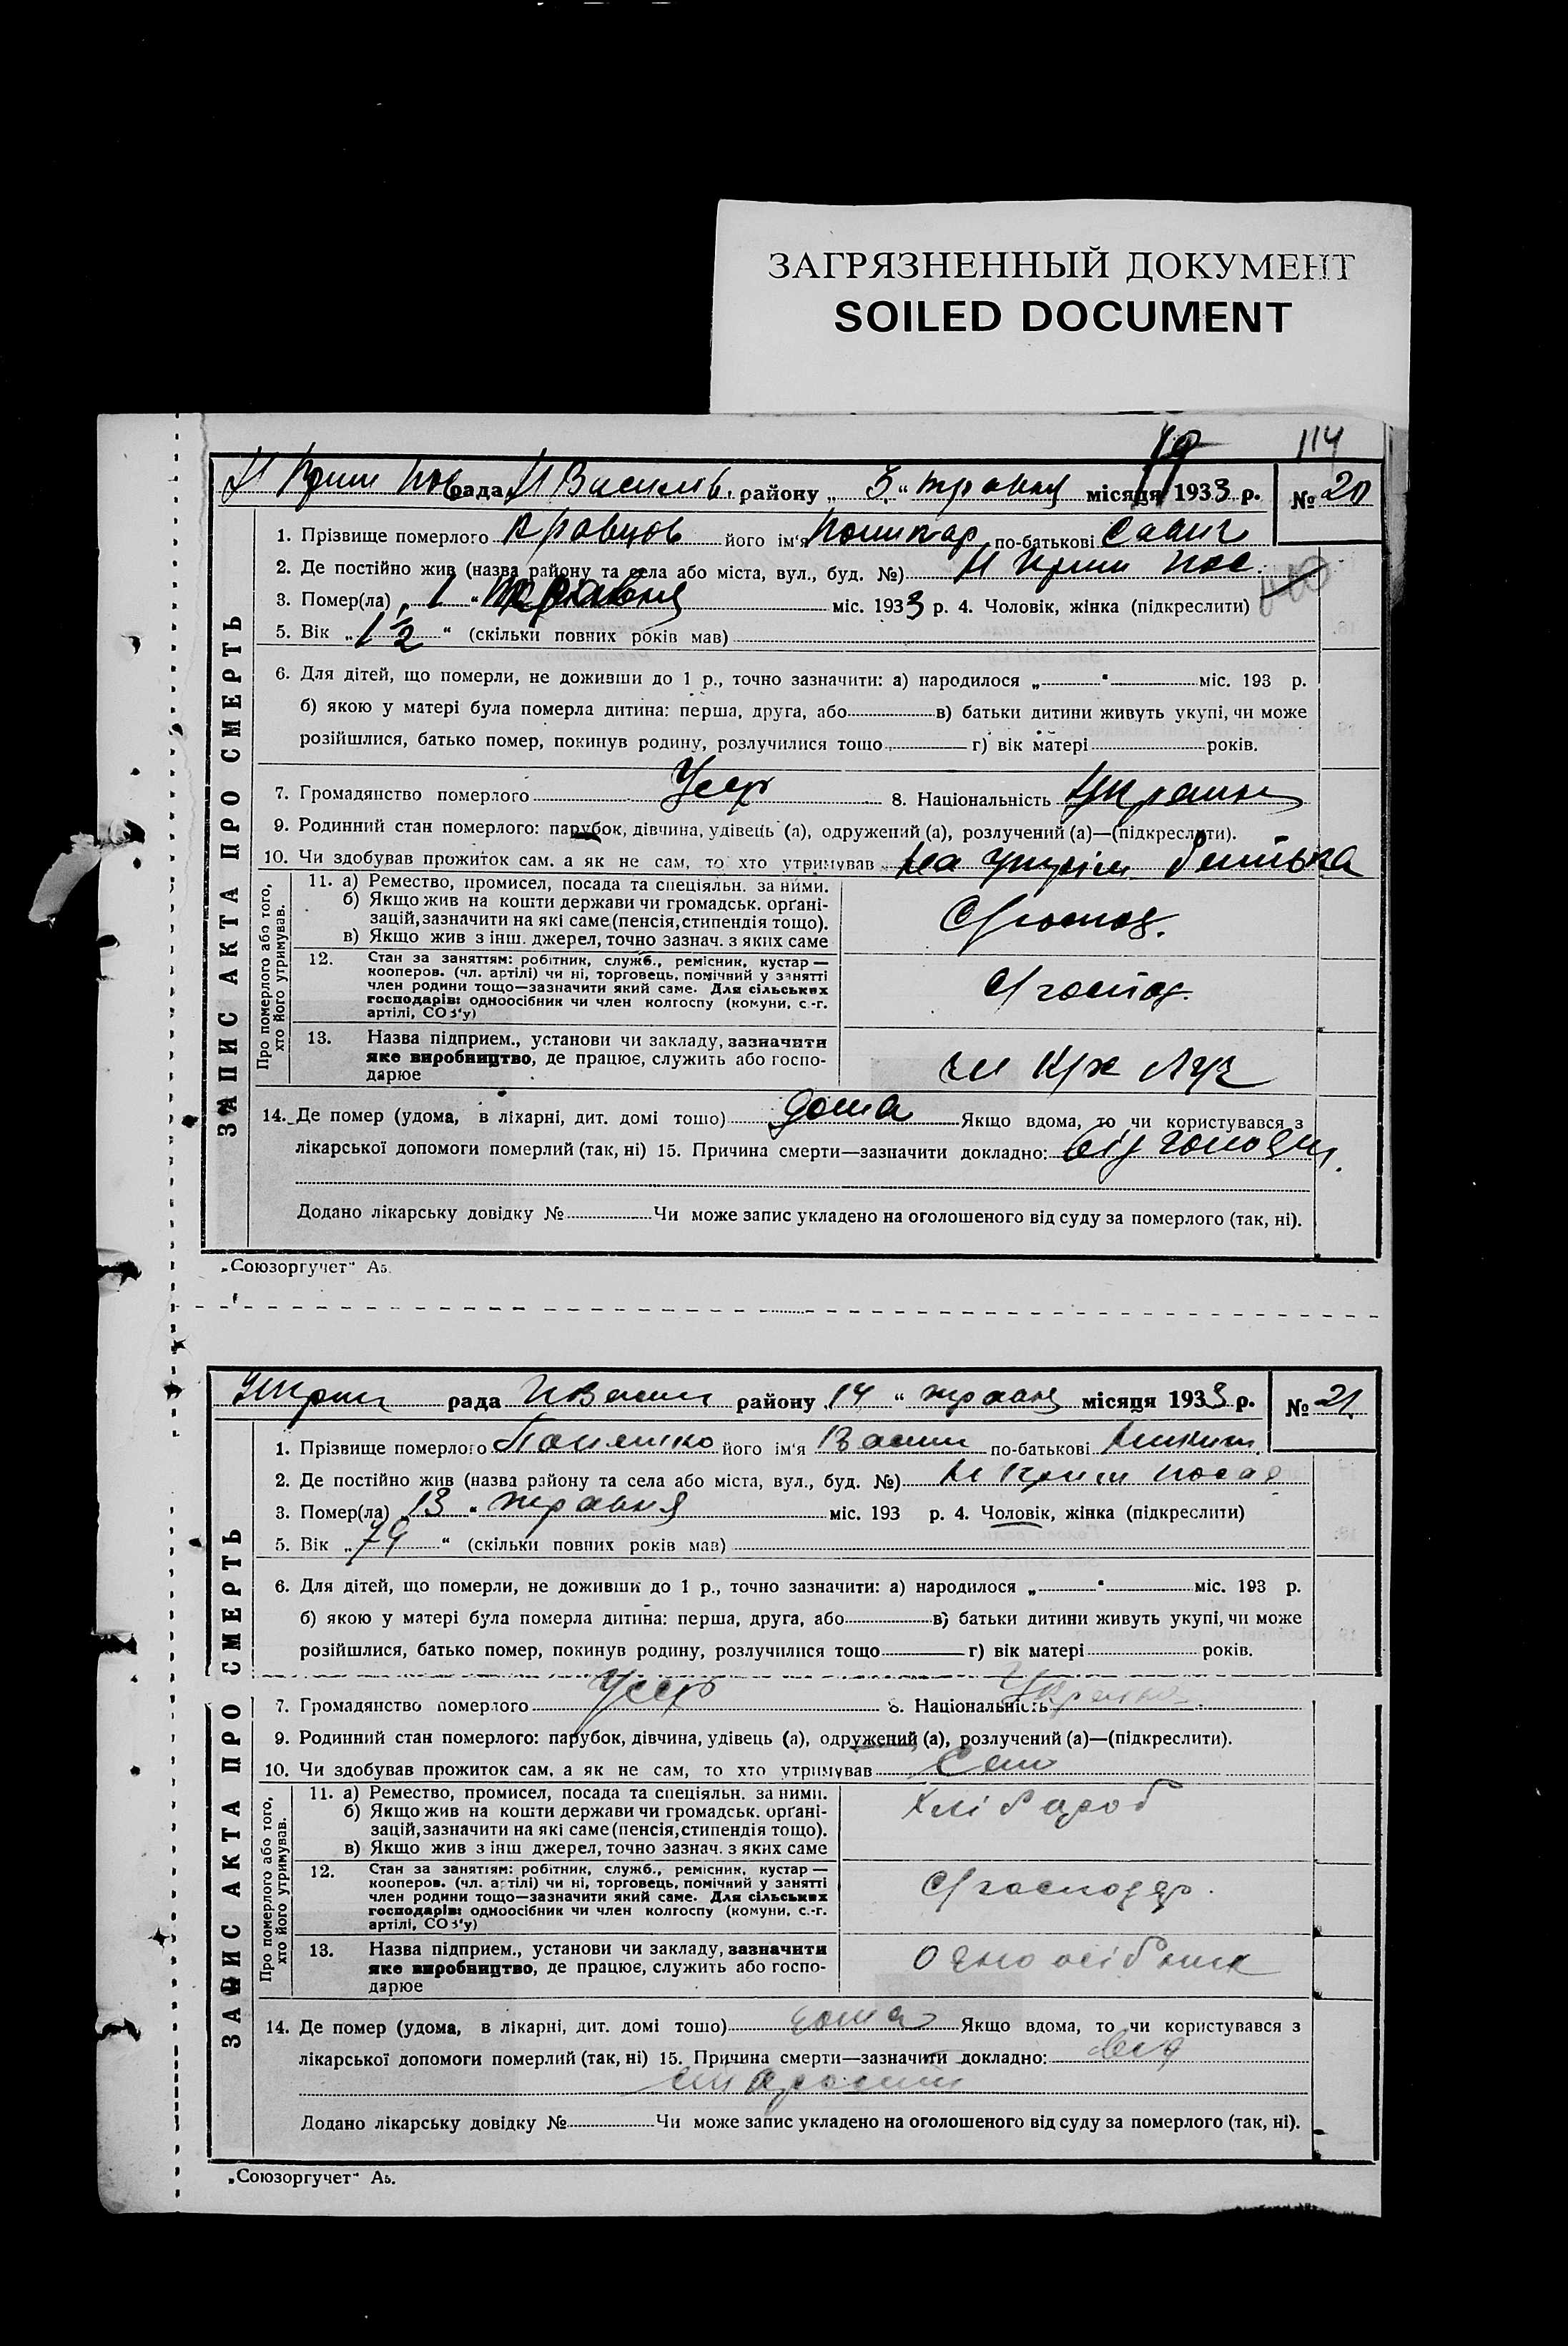 ЗАГРЯЗНЕННЫЙ ДОКУМЕНТ
SOILED DOCUMENT
114
рада Н Василів. району „ 3 “ травня місяця 1933 р. № 20
ЗАПИС АКТА ПРО СМЕРТЬ
1. Прізвище померлого Кравцов його ім'я Полікар по-батькові Савич
2. Де постійно жив (назва району та села або міста, вул., буд. №) Н Криш пос.
3. Помер(ла) „ 1 “ Травня міс. 1933 р. 4. Чоловік, жінка (підкреслити)
5. Вік „ 1 ½ “ (скільки повних років мав)
6. Для дітей, що померли, не доживши до 1 р., точно зазначити: а) народилося „ “ міс. 193 р.
б) якою у матері була померла дитина: перша, друга, або в) батьки дитини живуть укупі, чи може
розійшлися, батько помер, покинув родину, розлучилися тощо г) вік матері років.
7. Громадянство померлого Усср 8. Національність
9. Родинний стан померлого: парубок, дівчина, удівець (а), одружений (а), розлучений (а)—(підкреслити).
10. Чи здобував прожиток сам, а як не сам, то хто утримував на утрім батька
Про померлого або того, хто його утримував.
11. а) Ремество, промисел, посада та спеціяльн. за ними.
б) Якщо жив на кошти держави чи громадськ. органі-
зацій, зазначити на які саме (пенсія, стипендія тощо).
в) Якщо жив з інш. джерел, точно зазнач. з яких саме
С/господ.
12. Стан за заняттям: робітник, служб., ремісник, кустар —
кооперов. (чл. артілі) чи ні, торговець, помічний у занятті
член родини тощо—зазначити який саме. Для сільських
господарів: одноосібник чи член колгоспу (комуни, с.-г.
артілі, СОЗ'у)
С/господ.
13. Назва підприєм., установи чи закладу, зазначити
яке виробництво, де працює, служить або госпо-
дарює
14. Де помер (удома, в лікарні, дит. домі тощо) дома Якщо вдома, то чи користувався з
лікарської допомоги померлий (так, ні) 15. Причина смерти—зазначити докладно: від голоду.
Додано лікарську довідку № Чи може запис укладено на оголошеного від суду за померлого (так, ні).
„Союзоргучет“ А5.
рада НВасил району 14 “ травня місяця 1933 р. № 21
ЗАПИС АКТА ПРО СМЕРТЬ
1. Прізвище померлого його ім'я Васил по-батькові Микит.
2. Де постійно жив (назва району та села або міста, вул., буд. №) Н Криш посад
3. Помер(ла) „ 13 “ травня міс. 193 р. 4. Чоловік, жінка (підкреслити)
5. Вік „ 79 “ (скільки повних років мав)
6. Для дітей, що померли, не доживши до 1 р., точно зазначити: а) народилося „ “ міс. 193 р.
б) якою у матері була померла дитина: перша, друга, або в) батьки дитини живуть укупі, чи може
розійшлися, батько помер, покинув родину, розлучилися тощо г) вік матері років.
7. Громадянство померлого Усср 8. Національність
9. Родинний стан померлого: парубок, дівчина, удівець (а), одружений (а), розлучений (а)—(підкреслити).
10. Чи здобував прожиток сам, а як не сам, то хто утримував Сам
Про померлого або того, хто його утримував.
11. а) Ремество, промисел, посада та спеціяльн. за ними.
б) Якщо жив на кошти держави чи громадськ. органі-
зацій, зазначити на які саме (пенсія, стипендія тощо).
в) Якщо жив з інш джерел, точно зазнач. з яких саме
Хлібороб
12. Стан за заняттям: робітник, служб., ремісник, кустар —
кооперов. (чл. артілі) чи ні, торговець, помічний у занятті
член родини тощо—зазначити який саме. Для сільських
господарів: одноосібник чи член колгоспу (комуни, с.-г.
артілі, СОЗ'у)
С/господар.
13. Назва підприєм., установи чи закладу, зазначити
яке виробництво, де працює, служить або госпо-
дарює
Одноосібник
14. Де помер (удома, в лікарні, дит. домі тощо) дома Якщо вдома, то чи користувався з
лікарської допомоги померлий (так, ні) 15. Причина смерти—зазначити докладно: від
старости
Додано лікарську довідку № Чи може запис укладено на оголошеного від суду за померлого (так, ні).
„Союзоргучет“ А5.